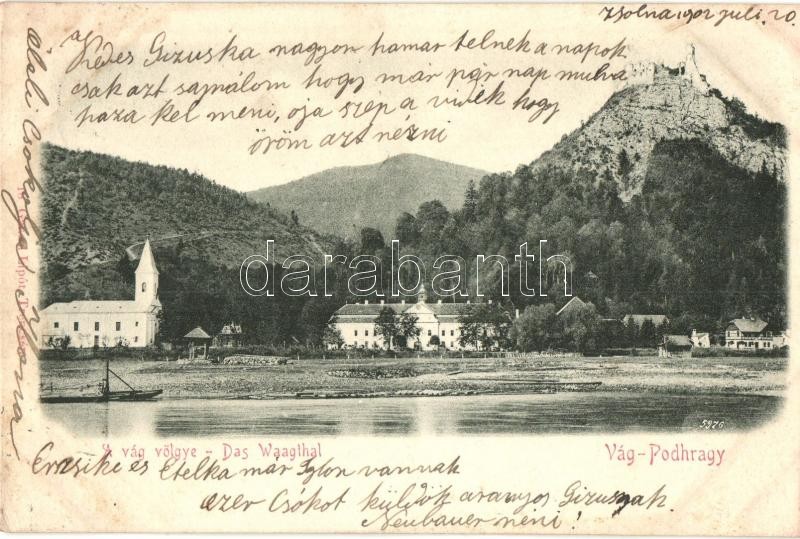 Zsolna 1902 juli. 20.
Kedes Gizuska nagyon hamar telnek a napok
csak azt sajnálom hogy már pár nap mulva
haza kel meni, oja szép a vidék hogy
öröm azt nézni
darabanth
5976
A vág völgye - Das Waagthal
Vág-Podhragy
Emesike és Etelka már Iglon vannak
ezer Csókot küldök aranyos Gizusnak
Neubauer néni!
öleli Csokolja Ilona
Lipót